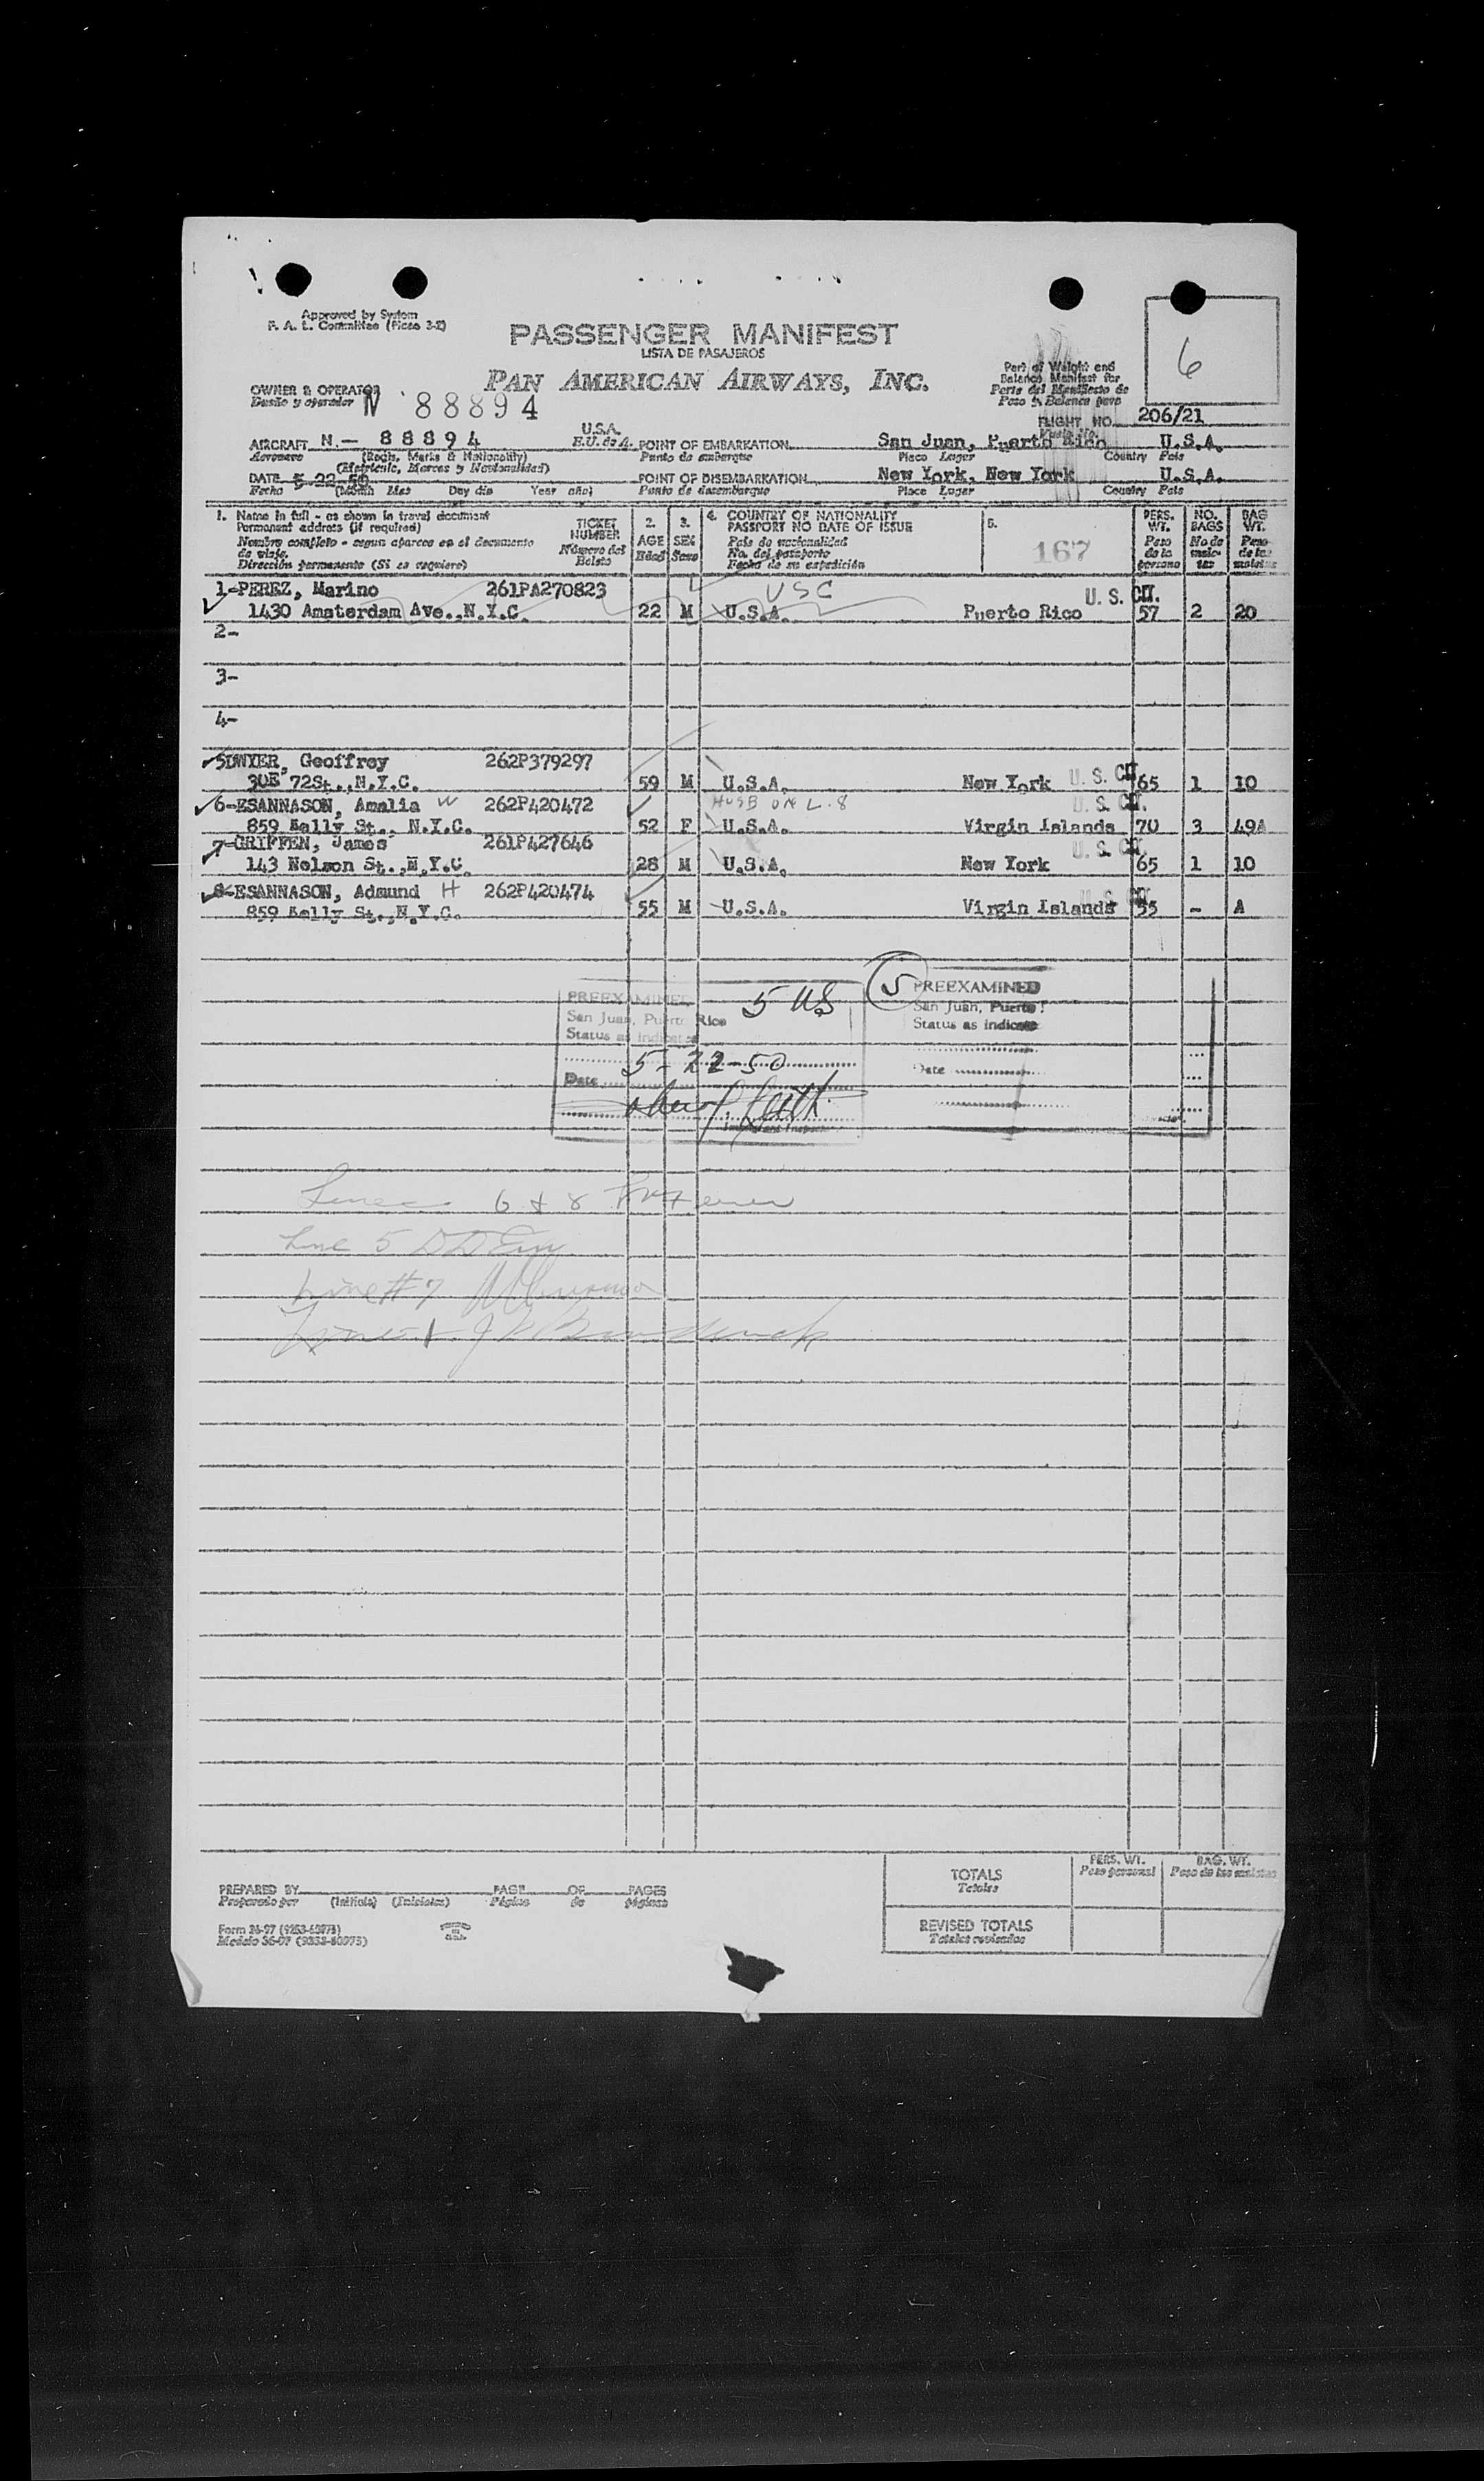 Approved by System
F. A. L. Committee (Picao 3-2)
6
PASSENGER MANIFEST
LISTA DE PASAJEROS
PAN AMERICAN AIRWAYS, INC.
Part of Weight and
Balance Manifest for
Parte del Manifiesto de
Peso y Balance para
OWNER & OPERATOR
Dueño y operador
N 88894
FLIGHT NO. 206/21
Vuelo No.
AIRCRAFT N.- 88894 U.S.A.
Aeronave (Regis. Marks & Nationality) E.U. de A.
(Matrícula, Marcas y Nacionalidad)
POINT OF EMBARKATION San Juan, Puerto Rico U.S.A.
Punto de embarque Place Lugar Country País
DATE 5-22-50
Fecho (Month Mes Day día Year año)
POINT OF DISEMBARKATION New York, New York U.S.A.
Punto de desembarque Place Lugar Country País
1. Name in full - as shown in travel document
Permanent address (if required)
Nombre completo - segun aparece en el documento
de viaje.
Dirección permanente (Si es requiere)
TICKET
NUMBER
Número del
Boleto
2.
AGE
Edad
3.
SEX
Sexo
4. COUNTRY OF NATIONALITY
PASSPORT NO DATE OF ISSUE
País de nacionalidad
No. del pasaporte
Fecha de su expedición
5.
167
PERS.
WT.
Peso
de la
persona
NO.
BAGS
No de
male-
tas
BAG
WT.
Peso
de las
maletas
1-PEREZ, Marino 261PA270823 USC U. S. CIT.
1430 Amsterdam Ave.,N.Y.C. 22 M U.S.A. Puerto Rico 57 2 20
2-
3-
4-
5DWYER, Geoffrey 262P379297
30E 72St.,N.Y.C. 59 M U.S.A. New York U. S. CIT. 65 1 10
6-ESANNASON, Amalia W 262P420472 HUSB ON L.8 U. S. CIT.
859 Kelly St., N.Y.C. 52 F U.S.A. Virgin Islands 70 3 49A
7-GRIFFEN, James 261P427646 U. S. CIT.
143 Nelson St.,N.Y.C. 28 M U.S.A. New York 65 1 10
8-ESANNASON, Admund H 262P420474 U. S. CIT.
859 Kelly St.,N.Y.C. 55 M U.S.A. Virgin Islands 55 - A
PREEXAMINED 5 US
San Juan, Puerto Rico
Status as indicated
5-22-50
Date
Immigrant Inspector
5 PREEXAMINED
San Juan, Puerto
Status as indicate
Date
Lines 6 & 8
Line 5
Line #7
Line 1
PREPARED BY (Initials) PAGE OF PAGES
Preparado por (Iniciales) Página de páginas
Form 36-97 (9253-60973)
Modelo 36-97 (9253-60973)
TOTALS
Totales
PERS. WT.
Peso personal
BAG. WT.
Peso de las maletas
REVISED TOTALS
Totales revisados